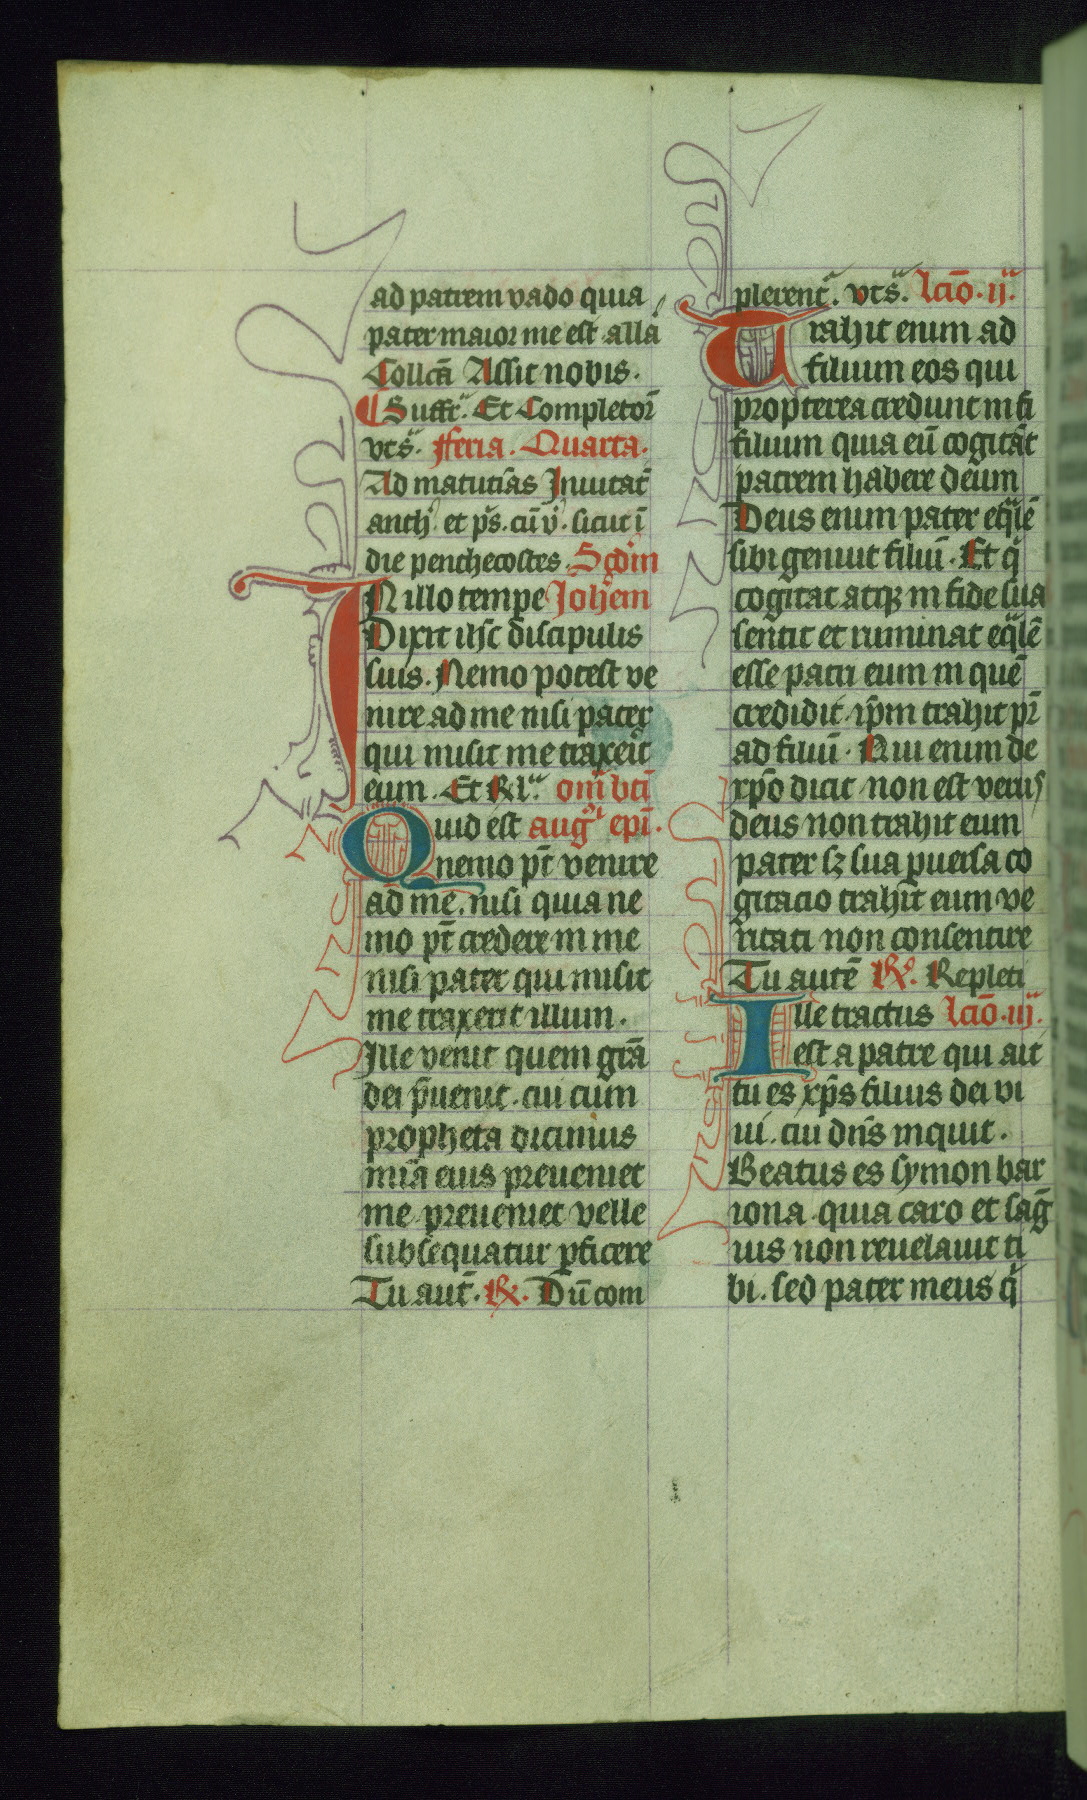 ad patrem vado quia
pater maior me est alla
Collcā Assit nobis.
Suffr. Et Completor̄
vts̄. Fferia. Quarta.
Ad matutīas Inuitat̄
anth̄ et ps̄. cū v̄. sicut ī
die penthecostes. Scdm
IN illo tempe Johem
Dixit ihsc discipulis
suis. Nemo potest ve
nire ad me nisi pater
qui misit me traxeit
eum. Et Rl. om̄ bti
Quid est aug epi.
nemo pt̄ venire
ad me. nisi quia ne
mo pt̄ credere in me
nisi pater qui misit
me traxerit illum.
Ille venit quem grā
dei p̄uenit. cui cum
propheta dicimus
mīa eius preueniet
me. preueniet velle
subsequatur pficere
Tu aut̄. R̄. Dū com
plerent̄. vts̄. lcīo. ij.
Trahit enim ad
filium eos qui
propterea credunt in fi
filium quia eū cogitāt
patrem habere deum
Deus enim pater eqlē
sibi genuit filiū. Et q
cogitat atqz in fide sua
sentit et ruminat eqlē
esse patri eum in quē
credidit. ip̄m trahit pr̄
ad filiū. Nui enim de
xp̄o dicit non est verus
deus non trahit eum
pater sz sua puersa co
gitacio trahit eum ve
ritati non consentire
Tu autē R̄. Repleti
Ille tractus lcīo. iij.
est a patre qui ait
tu es xp̄s filius dei vi
ui. cui dn̄s inquit.
Beatus es symon bar
iona. quia caro et sāg
uis non reuelauit ti
bi. sed pater meus q